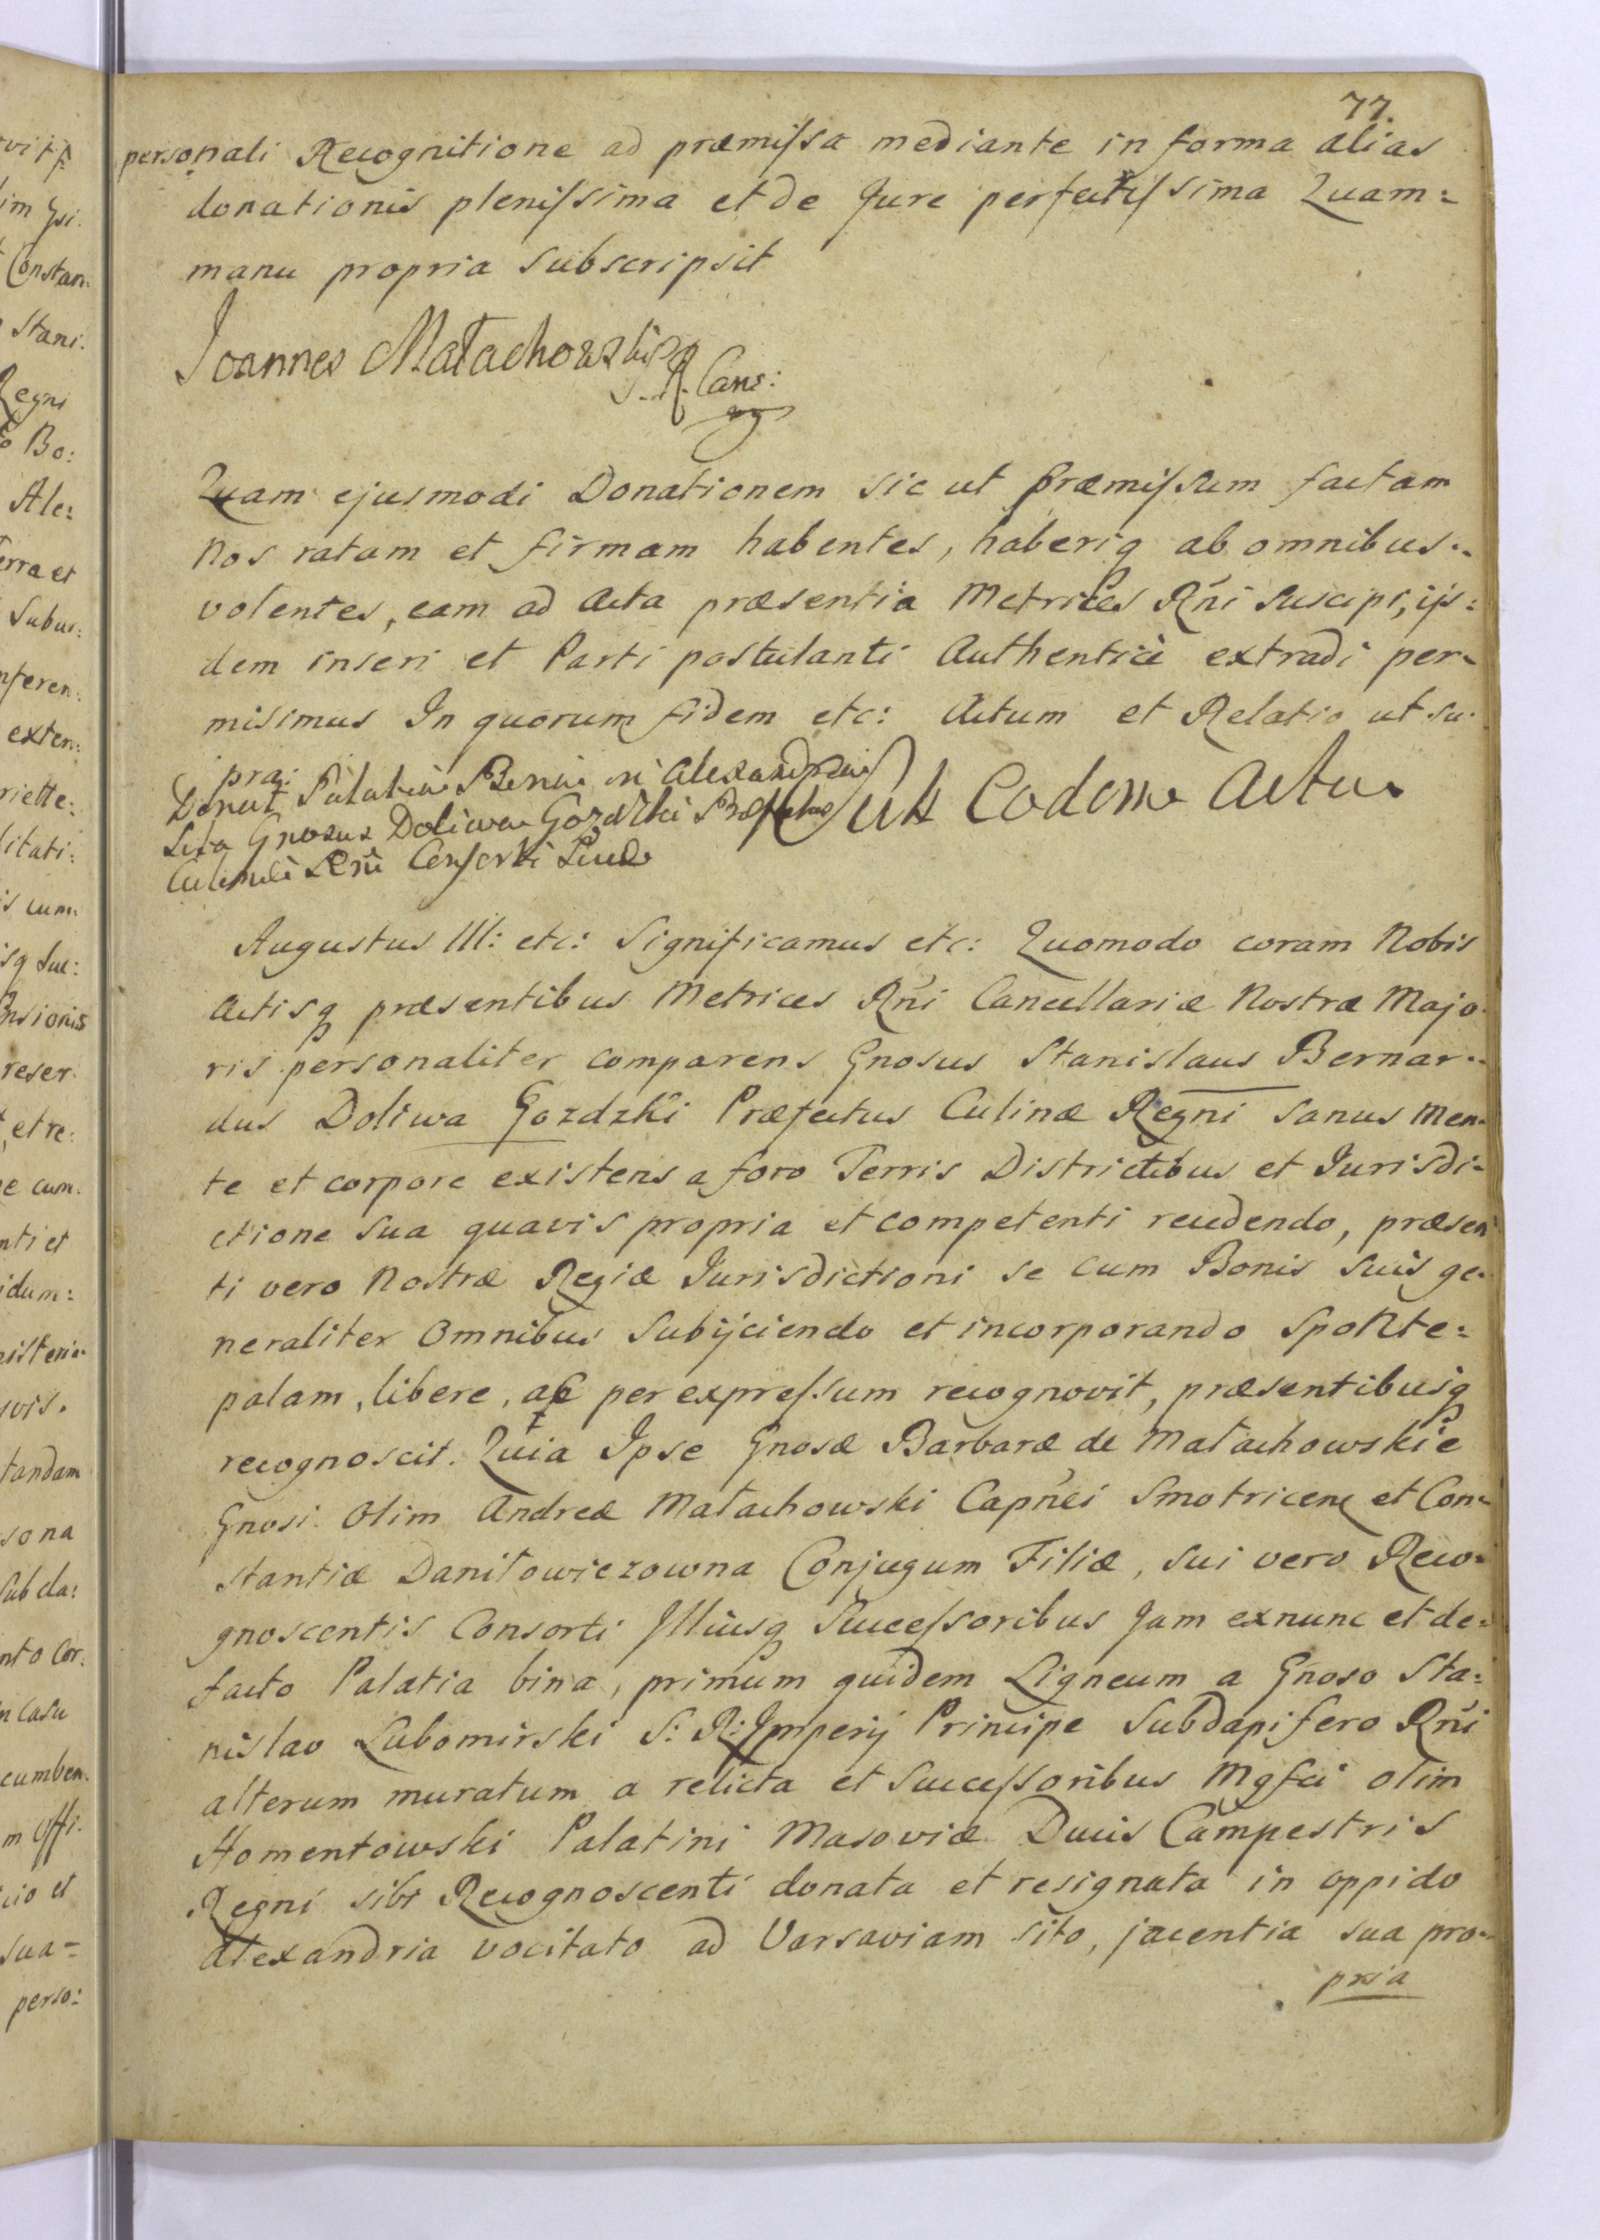 77.
personali Recognitione ad præmissa mediante in forma alias
donationis plenissima et de Jure perfectissima Quam=
manu propria subscripsit
Joannes Małachowski
S. R. Canc:
Quam ejusmodi Donationem sic ut præmissum factam
Nos ratam et firmam habentes, haberiq ab omnibus
volentes, eam ad Acta præsentia Metrices Rñi suscipi, ijs=
dem inseri et Parti postulanti Authenticè extradi per-
misimus In quorum fidem etc: Actum et Relatio ut su-
pra:
Donat Palatia Bina in Alexandria
sita Gnosus Doliwa Gozdzki Præfectus
Culinæ Rñi Consorti suæ
Sub Eodem Actu
Augustus III: etc: Significamus etc: Quomodo coram Nobis
Actisq præsentibus Metrices Rñi Cancellariæ Nostræ Majo-
ris personaliter comparens Gnosus Stanislaus Bernar-
dus Doliwa Gozdzki Præfectus Culinæ Regni sanus men-
te et corpore existens a foro Terris Districtibus et Jurisdi-
ctione sua quavis propria et competenti recedendo, præsen
ti vero Nostræ Regiæ Jurisdictioni se cum Bonis suis ge-
neraliter Omnibus subijciendo et incorporando sponte=
palam, libere, ac per expressum recognovit, præsentibusq
recognoscit. Quia Ipse Gnosæ Barbaræ de Małachowskie
Gnosi Olim Andreæ Małachowski Capñei Smotricen et Con-
stantiæ Daniłowiczowna Conjugum Filiæ, sui vero Reco-
gnoscentis Consorti Illiusq Successoribus Jam exnunc et de-
facto Palatia bina, primum quidem Ligneum a Gñoso Sta-
nislao Lubomirski S: R: Imperij Principe Subdapifero Rñi
alterum muratum a relicta et Successoribus Mgfci olim
Homentowski Palatini Masoviæ Ducis Campestris
Regni sibi Recognoscenti donata et resignata in oppido
Alexandria vocitato ad Varsaviam sito, jacentia sua pro-
pria